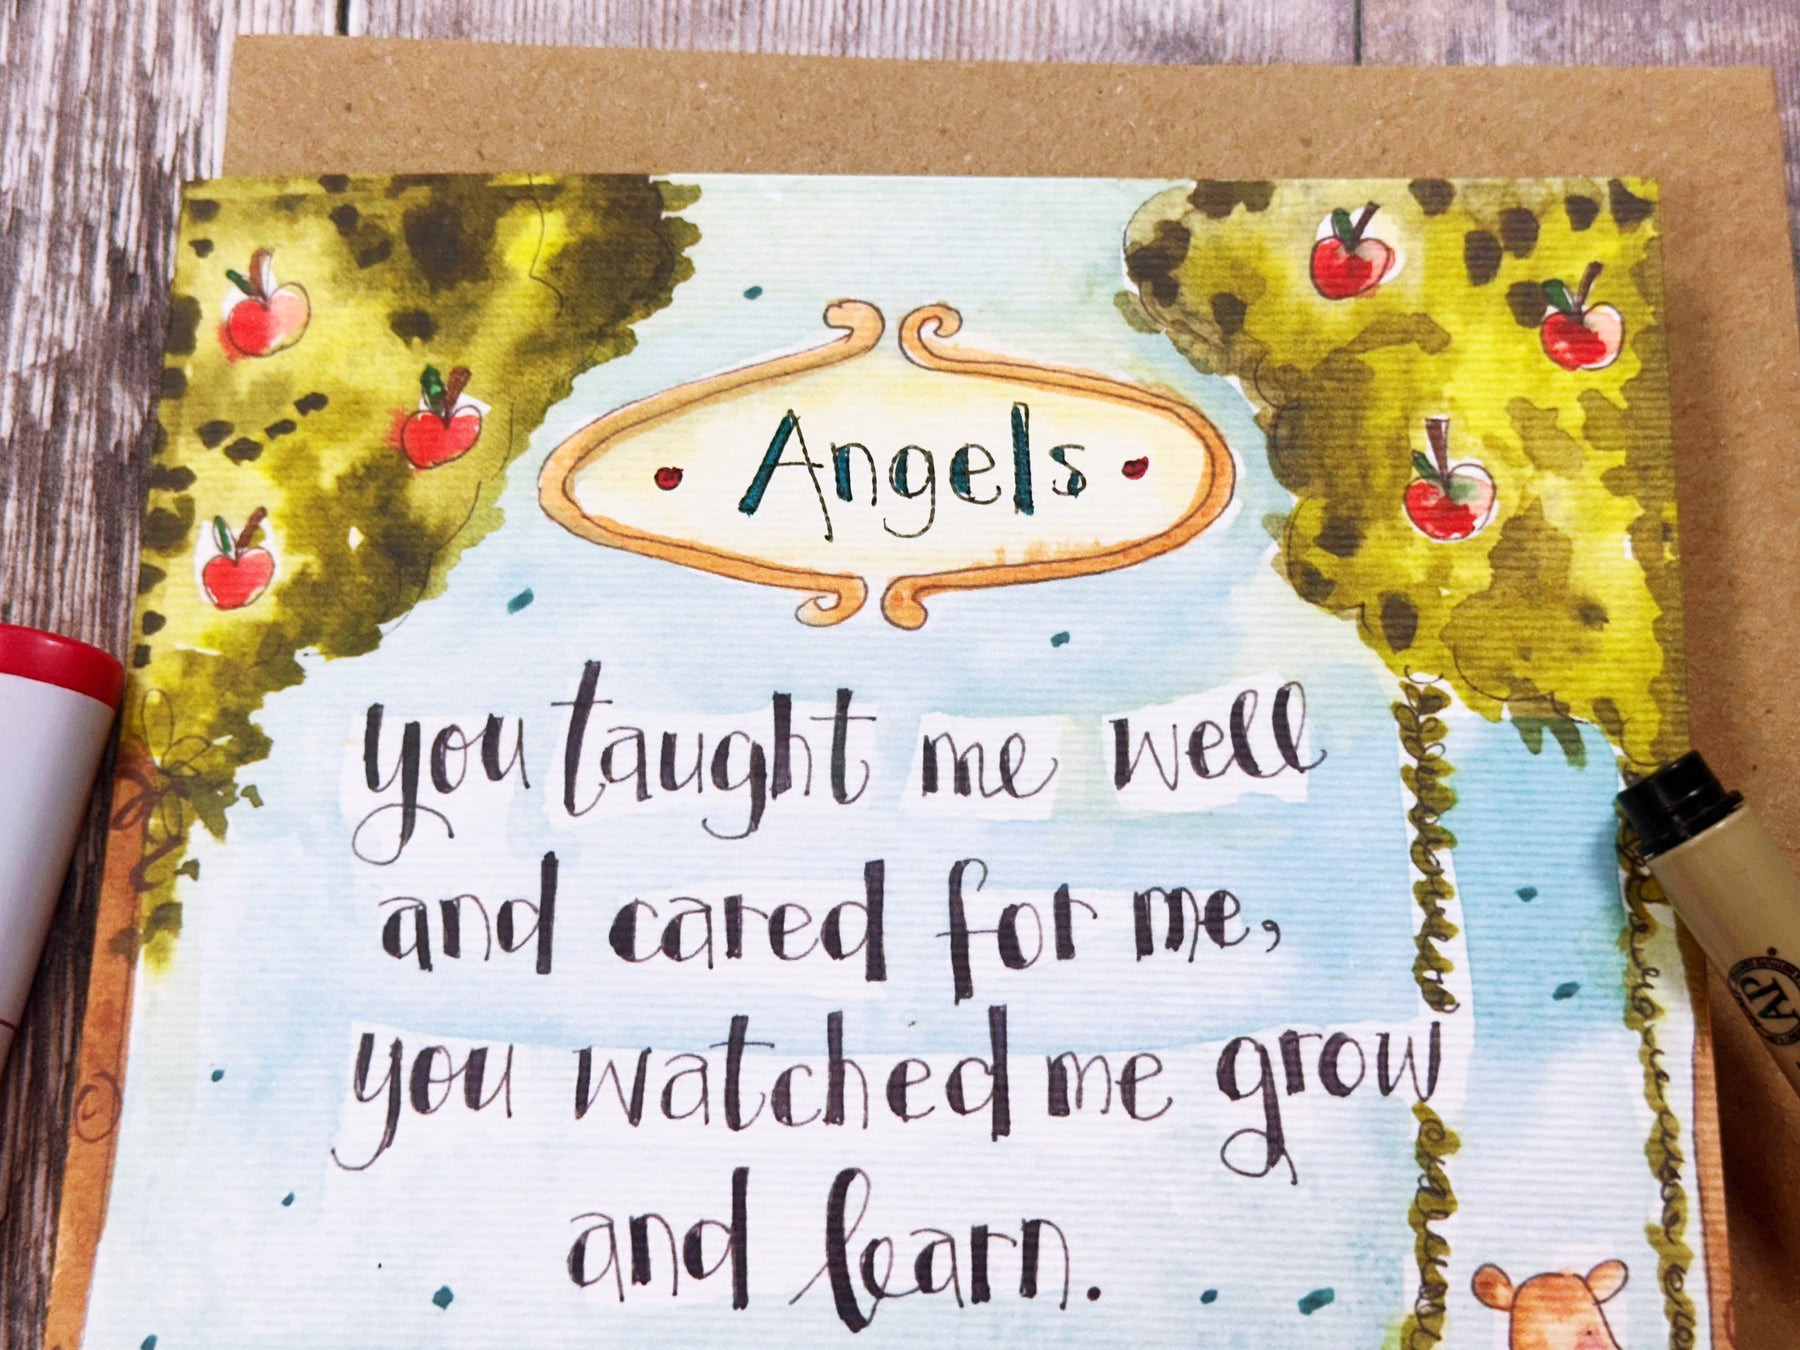 Angels
you taught me well
and cared for me,
you watched me grow
and learn.
AP